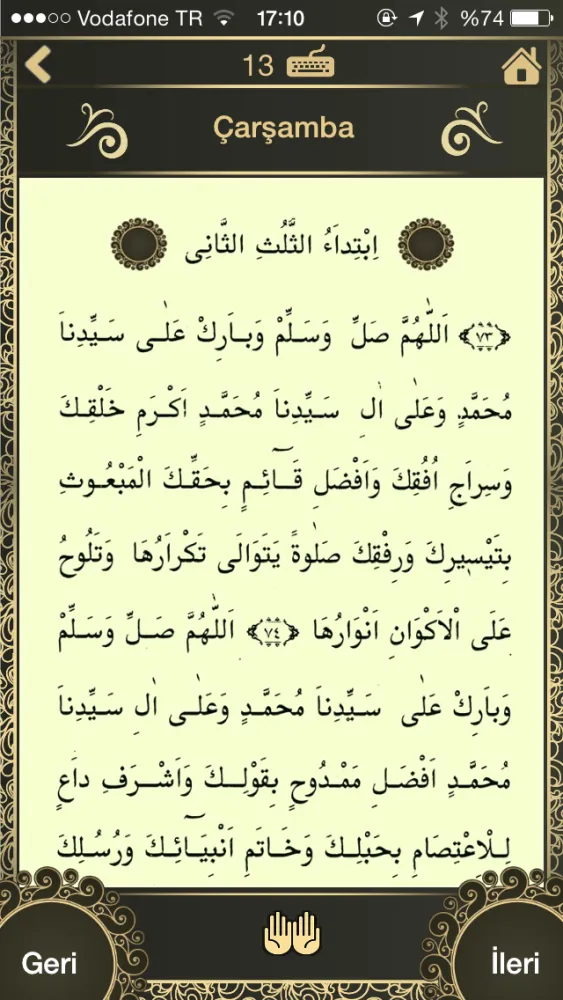 Vodafone TR 17:10 %74
13
Çarşamba
اِبْتِداَءُ الثَّلُثِ الثَّانِى
﴿٧٣﴾ اَللّٰهُمَّ صَلِّ وَسَلِّمْ وَباَرِكْ عَلٰى سَيِّدِناَ
مُحَمَّدٍ وَعَلٰى اٰلِ سَيِّدِناَ مُحَمَّدٍ اَكْرَمِ خَلْقِكَ
وَسِراَجِ اُفُقِكَ وَاَفْضَلِ قَٓائِمٍ بِحَقِّكَ الْمَبْعُوثِ
بِتَيْسِيرِكَ وَرِفْقِكَ صَلٰوةً يَتَوَالَى تَكْرَارُهَا وَتَلُوحُ
عَلَى اْلاَكْوَانِ اَنْوَارُهَا ﴿٧٤﴾ اَللّٰهُمَّ صَلِّ وَسَلِّمْ
وَباَرِكْ عَلٰى سَيِّدِناَ مُحَمَّدٍ وَعَلٰى اٰلِ سَيِّدِناَ
مُحَمَّدٍ اَفْضَلِ مَمْدُوحٍ بِقَوْلِكَ وَاَشْرَفِ داَعٍ
لِلْاِعْتِصَامِ بِحَبْلِكَ وَخَاتَمِ اَنْبِيَٓائِكَ وَرُسُلِكَ
Geri İleri